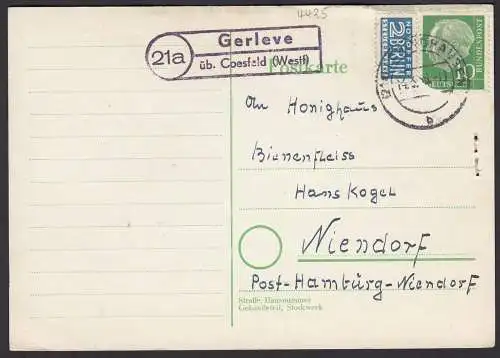 4425
21a
Gerleve
üb. Coesfeld (Westf)
Postkarte
2 NOTOPFER
BERLIN
STEUERMARKE
10
DEUTSCHE BUNDESPOST
b
An Honighaus
Bienenfleiss
Hans Kogel
Niendorf
Post-Hamburg-Niendorf
Straße, Hausnummer
Gebäudeteil, Stockwerk